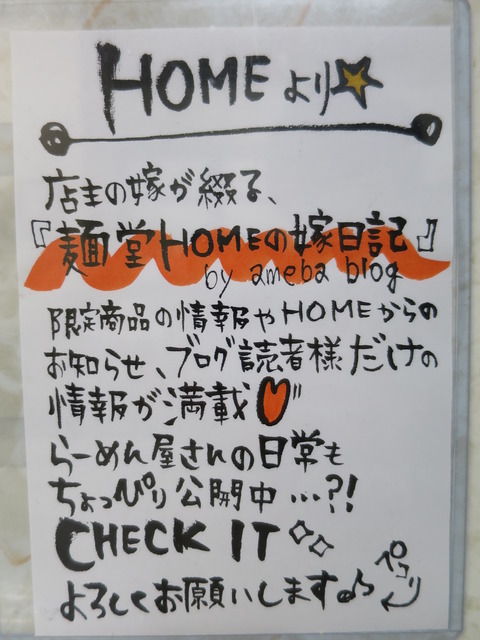 HOMEより☆
店主の嫁が綴る、
『麺堂HOMEの嫁日記』
by ameba blog
限定商品の情報やHOMEからの
お知らせ、ブログ読者様だけの
情報が満載
らーめん屋さんの日常も
ちょっぴり公開中…?!
CHECK IT
よろしくお願いします♪
ペコリ